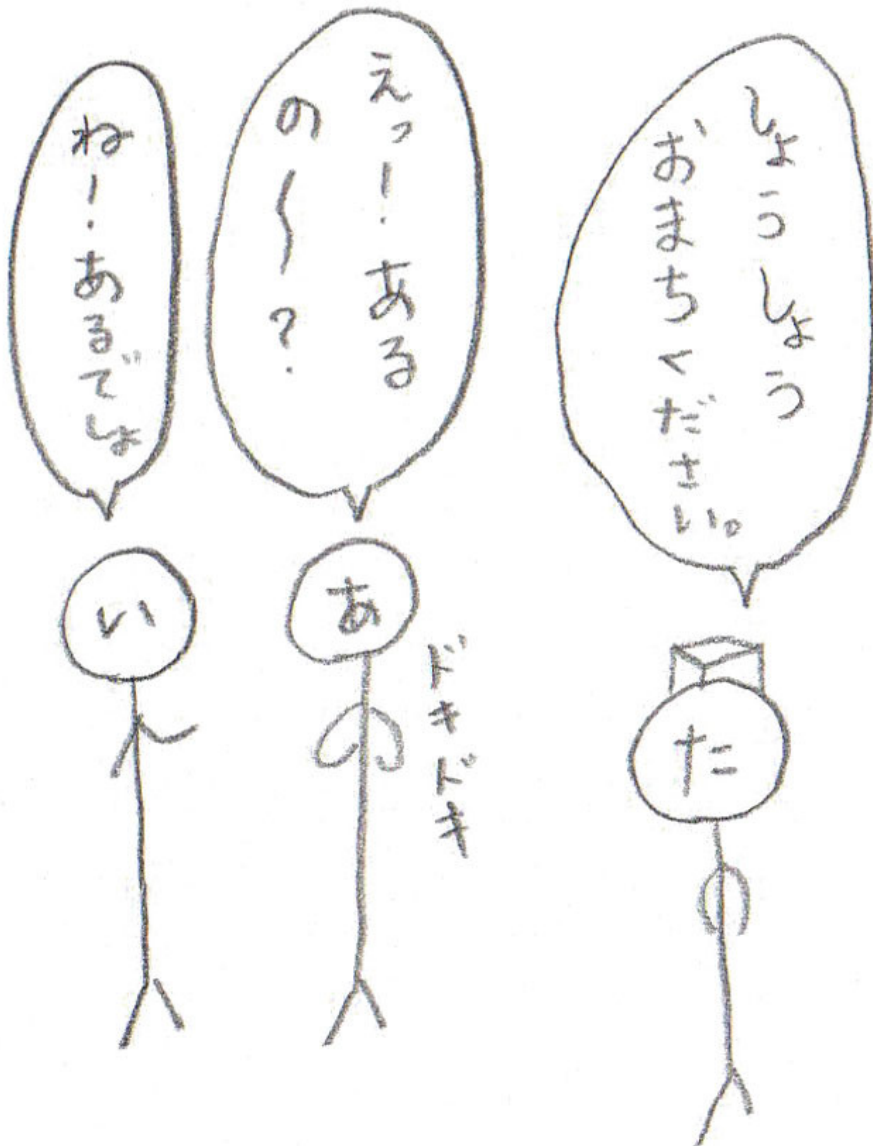 しょうしょう
おまちください。
た
えっ!ある
の〜?
あ
ドキドキ
ね!あるでしょ
い